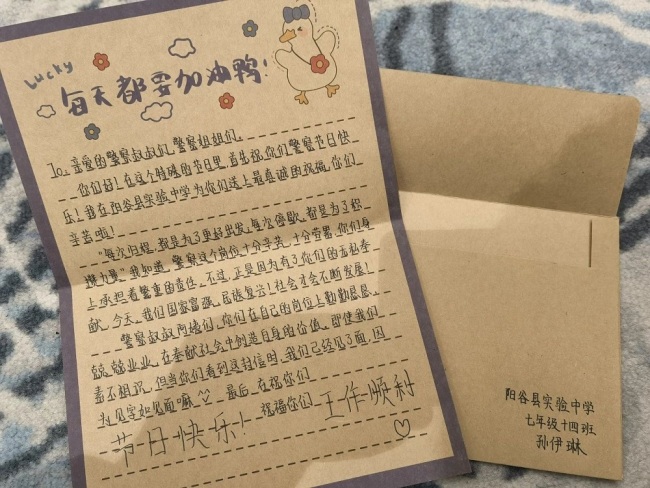 Lucky
每天都要加油鸭!
To:亲爱的警察叔叔们,警察姐姐们.
你们好!在这个特殊的节日里,首先祝你们警察节日快
乐!我在阳谷县实验中学为你们送上最真诚的祝福,你们
辛苦啦!
"每次归程,都是为了更好出发,每次停歇,都是为了积
攒力量"我知道,警察这个岗位十分辛苦,十分劳累,你们身
上承担着繁重的责任,不过,正是因为有了你们的无私奉
献,今天,我们国家富强,民族复兴!社会才会不断发展!
警察叔叔阿姨们,你们在自己的岗位上勤勤恳恳,
兢兢业业,在奉献社会中创造自身的价值,即使我们
素不相识,但当你们看到这封信时,我们已经见了面,因
为见字如见面嘛^^ 最后,在福你们
祝福你们 工作顺利
节日快乐!
阳谷县实验中学
七年级十四班
孙伊琳